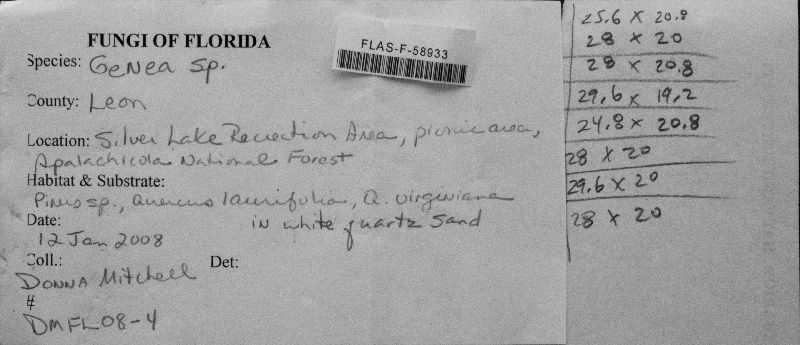 FUNGI OF FLORIDA
FLAS-F-58933
Species: Genea sp.
County: Leon
Location: Silver Lake Recreation Area, picnic area,
Apalachicola National Forest
Habitat & Substrate:
Pinus sp., Quercus laurifolia, Q. virginiana
in white quartz sand
Date:
12 Jan 2008
Coll.: Det:
Donna Mitchell
#
DMFL08-4
25.6 x 20.8
28 x 20
28 x 20.8
29.6 x 19.2
24.8 x 20.8
28 x 20
29.6 x 20
28 x 20